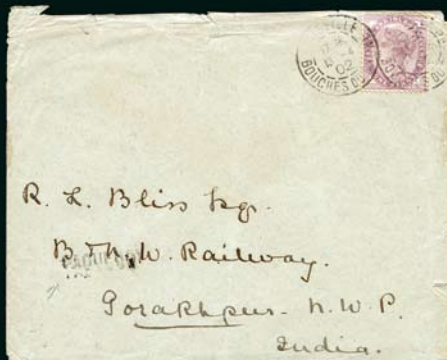 BOUCHES DU
02
R. L. Bliss Esq.
B & N. W. Railway.
PAQUEBOT
Gorakhpur. N. W. P.
India.